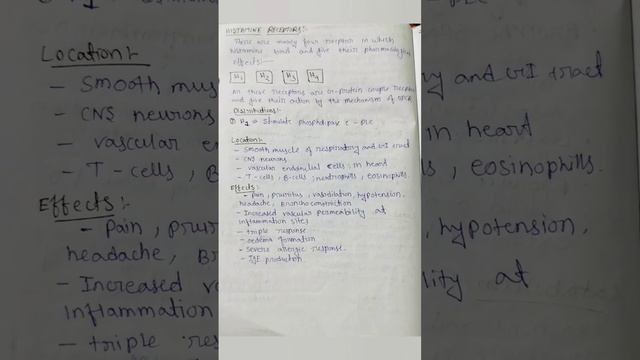 HISTAMINE RECEPTORS:-
There are mainly four receptor in which
histamine bind and give their pharmacological
effects:-
H1 H2 H3 H4
All these receptors are G-protein couple receptor
and give their action by the mechanisms of GPCR
Distributions:-
① H1 ⇒ stimulate phospholipase C - PLC
Location:-
- Smooth muscle of respiratory and GI tract
- CNS neurons
- vascular endothelial cells, in heart
- T-cells, B-cells, neutrophills, eosinophills.
Effects:-
- Pain, pruritus, vasodilation, hypotension,
headache, Bronchoconstriction
- Increased vascular permeability at
inflammation sites
- triple response
- oedema formation
- severe allergic response.
- IgE production
Location:-
- Smooth mus
- CNS neurons
- vascular e
- T-cells, B
Effects:-
- Pain, pru
headache, B
- Increased va
inflammation
- triple res
and GI tract
in heart
eosinophills.
hypotension,
lity at